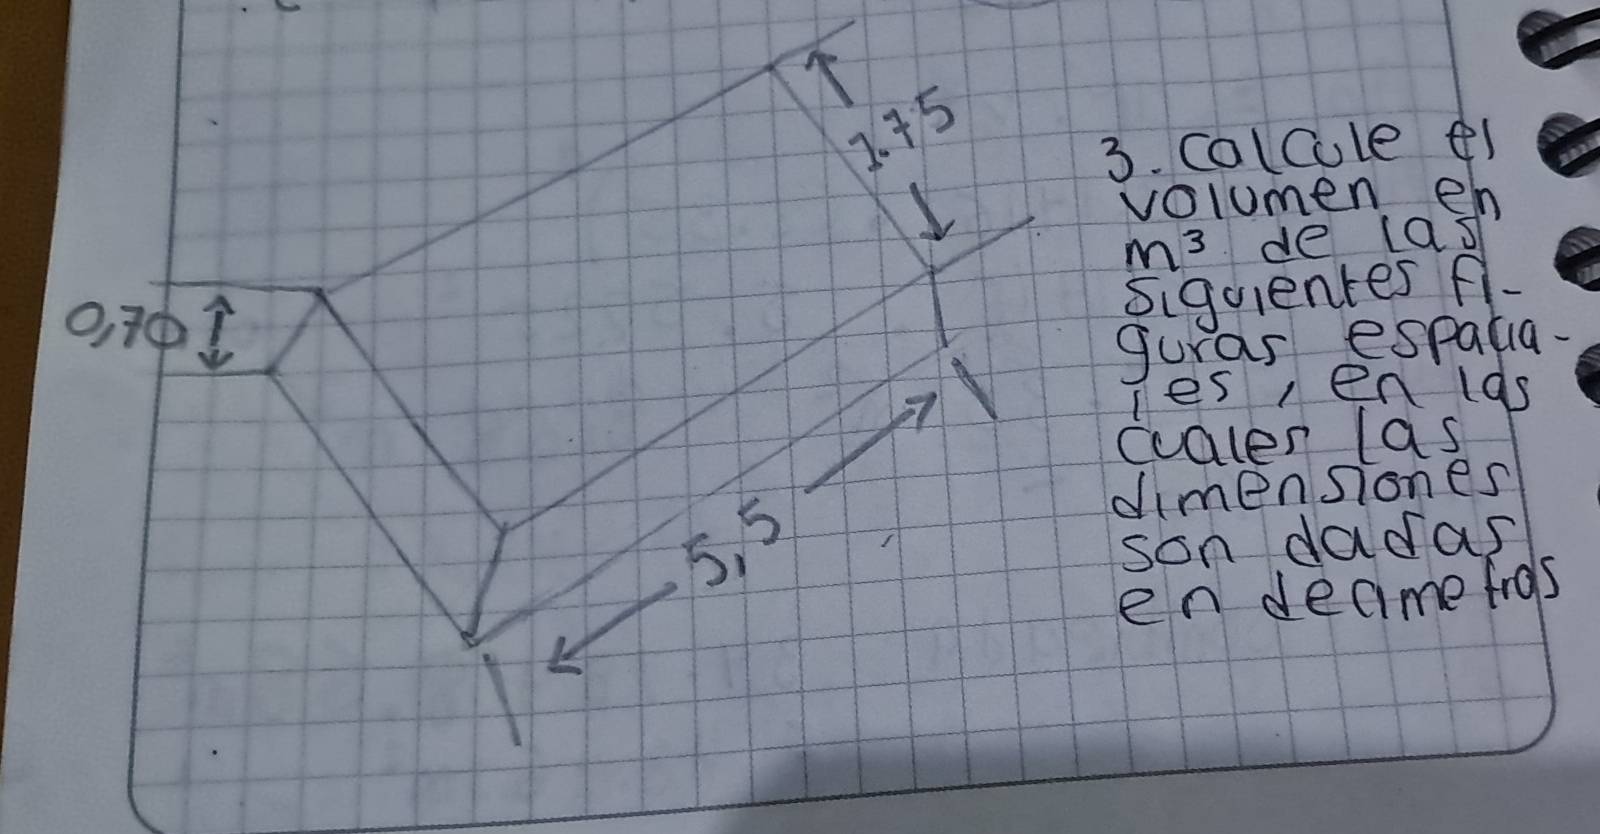 1.75
0,70
5,5
3. Calcule el
volumen en
m³ de las
siguientes fi-
guras espacia-
les, en las
cuales las
dimensiones
son dadas
en decimetros